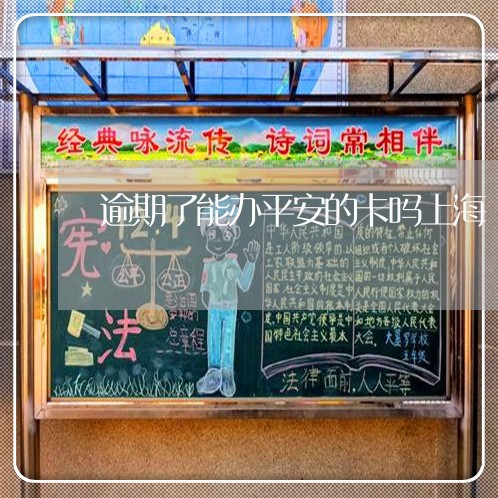 经典咏流传 诗词常相伴
逾期了能办平安的卡吗上海
宪法
12.4
公平
公正
总章程
中华人民共和国
是工人阶级领导的,以
工农联盟为基础的
人民民主专政的社会主义
国家,社会主义制度是中
华人民共和国的根本制
度,中国共产党领导是中
国特色社会主义最本
质的特征,禁止任何
组织或者个人破坏社会
主义制度,中华人民共和
国的一切权利属于人民,
人民行使国家权力的机
关是全国人民代表大会
和地方各级人民代表
大会。
五年级
法律面前,人人平等